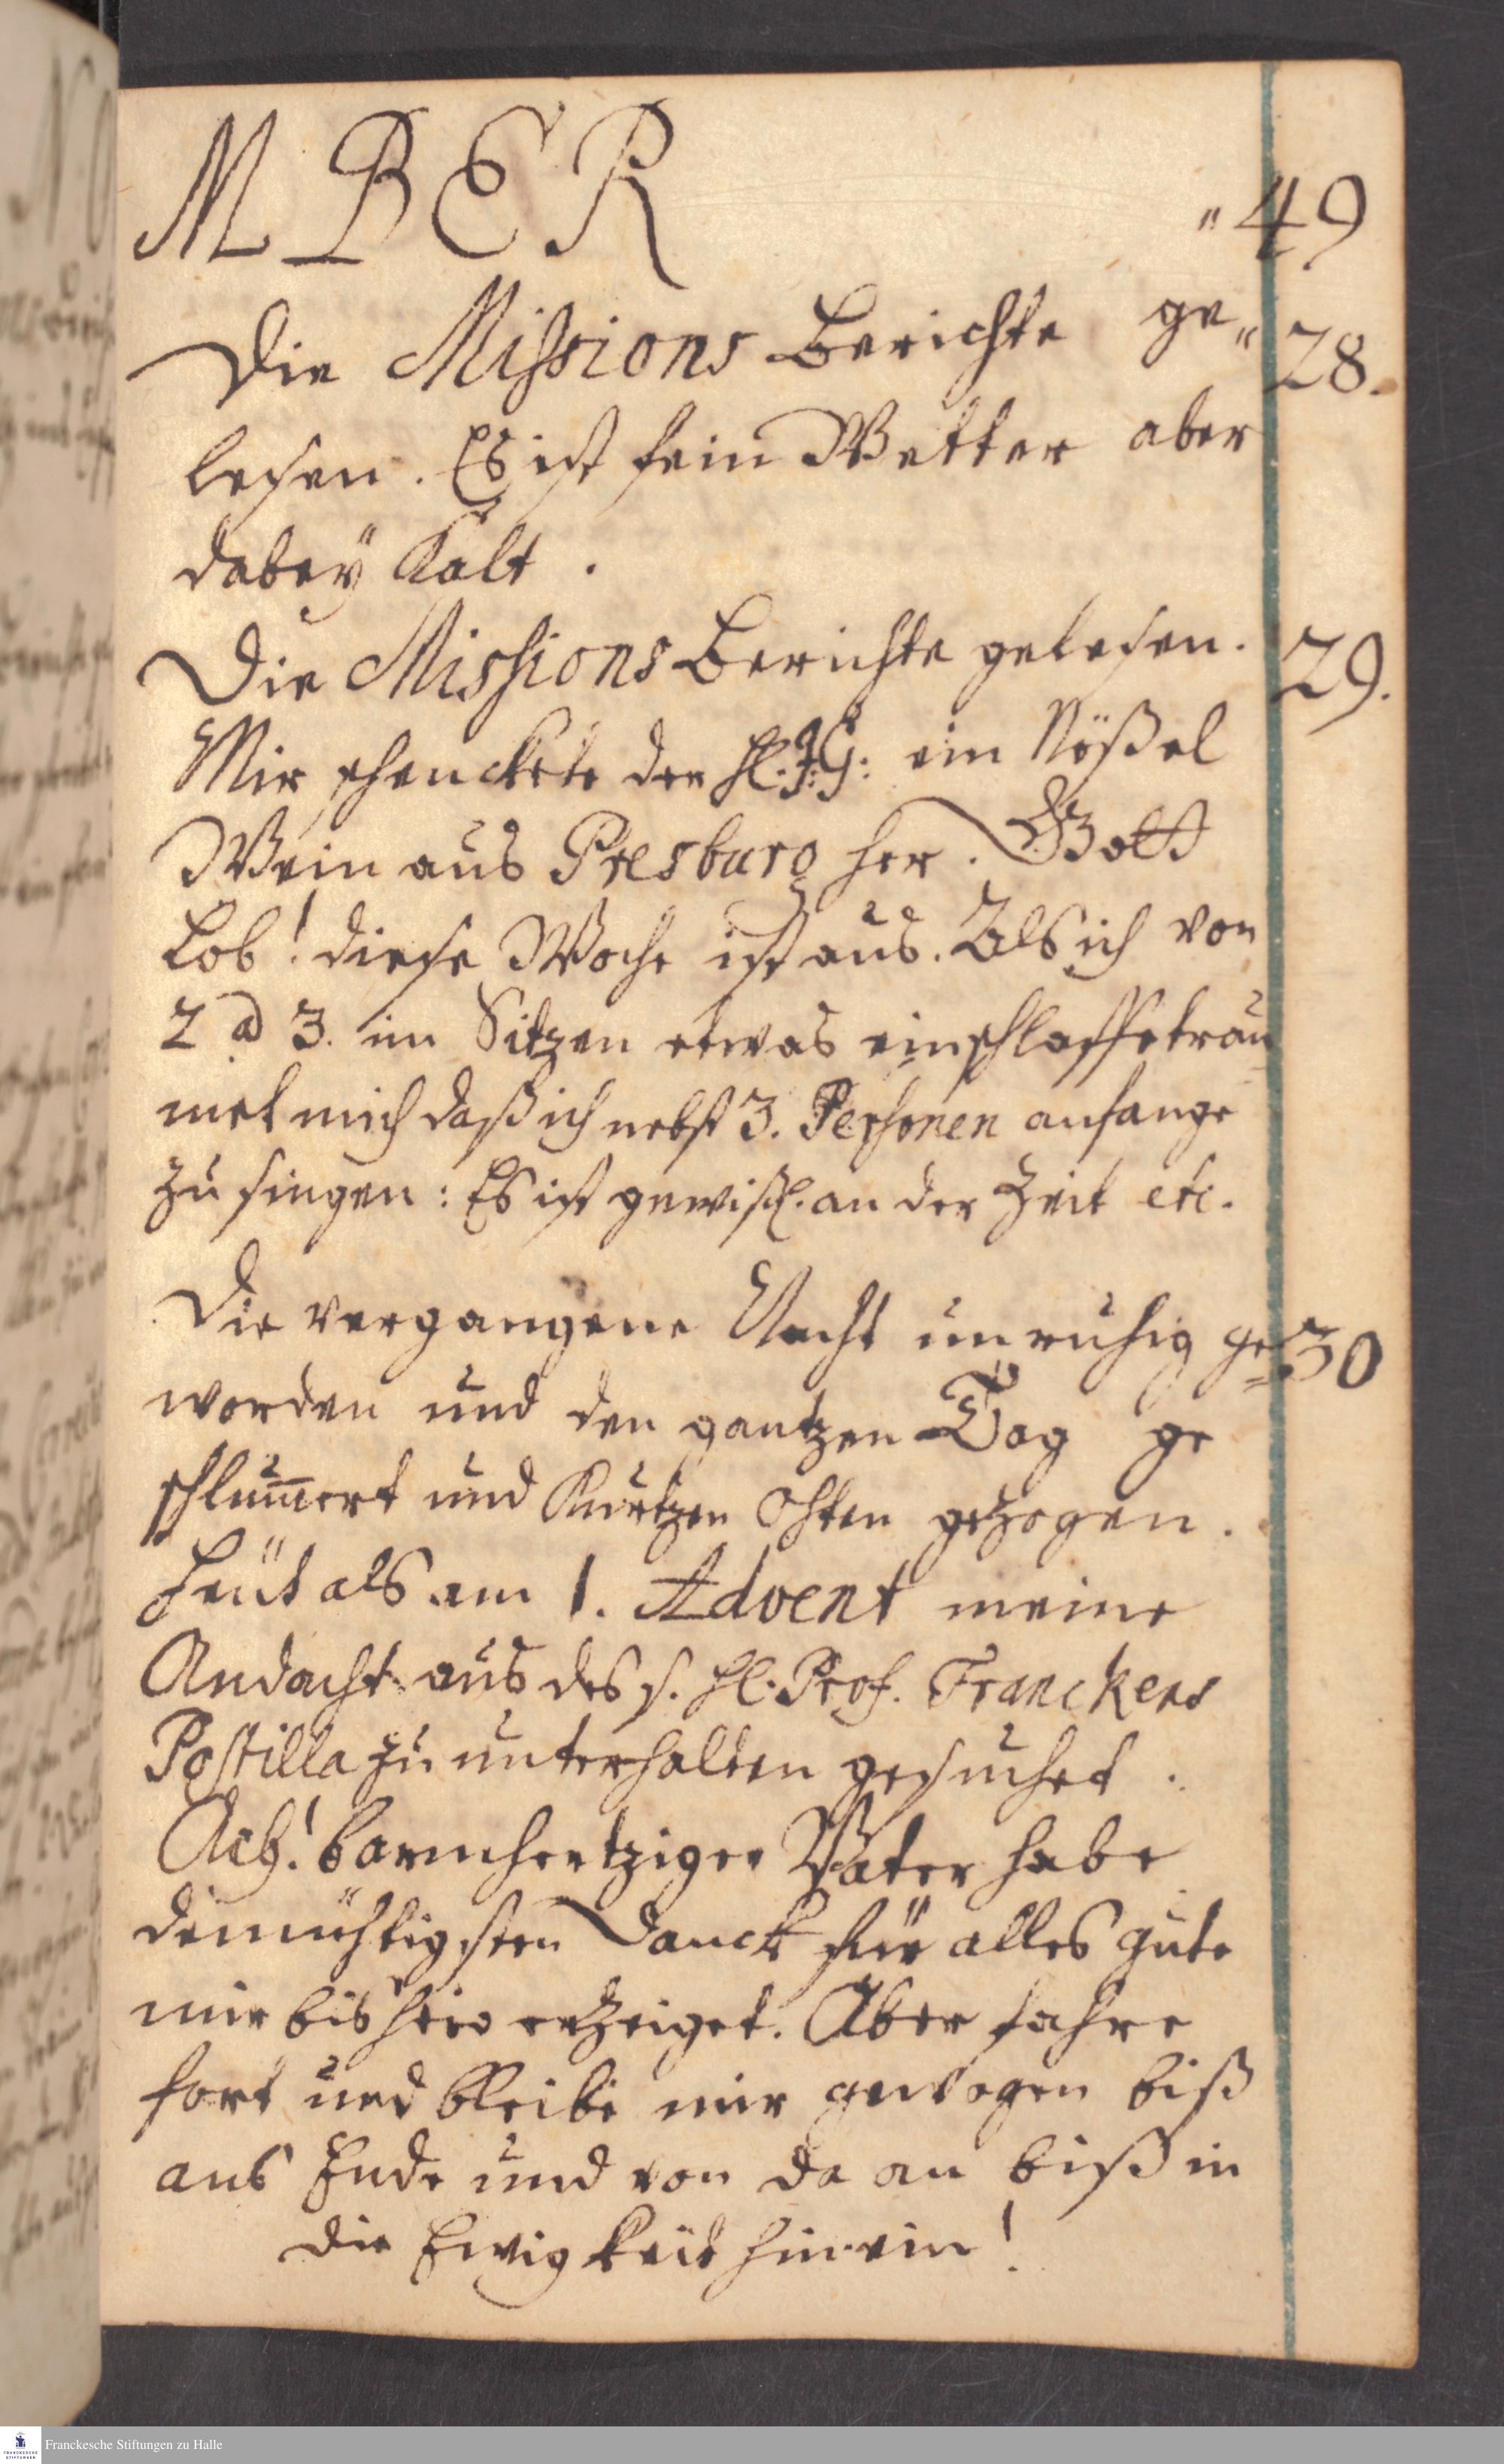 MBER
49
Die Missions Berichte ge- 28.
lesen. Es ist fein Wetter aber
dabeÿ Kalt.
Die Missions Berichte gelesen. 29.
Mir schenckete der H. J: G: ein Nößel
Wein aus Presburg her. Gott
Lob! diese Woche ist aus. Als ich von
2 a 3. im Sitzen etwas einschlaffe träu-
met mich daß ich nebst 3. Personen anfange
zu singen: Es ist gewißl. an der Zeit etc.
Die vergangene Nacht unruhig ge- 30
worden und den gantzen Tag ge
schlum̄ert und Kurtzen Othen gezogen.
Heüt als am 1. Advent meine
Andacht aus des s. H. Prof. Franckens
Postilla zu unterhalten gesuchet.
Ach! barmhertziger Vater habe
demüthigsten Danck für alles gute
mir bishero erzeiget. Aber fahre
fort und bleibe mir gewogen biß
ans Ende und von da an biß in
die Ewigkeit hinein!
Franckesche Stiftungen zu Halle